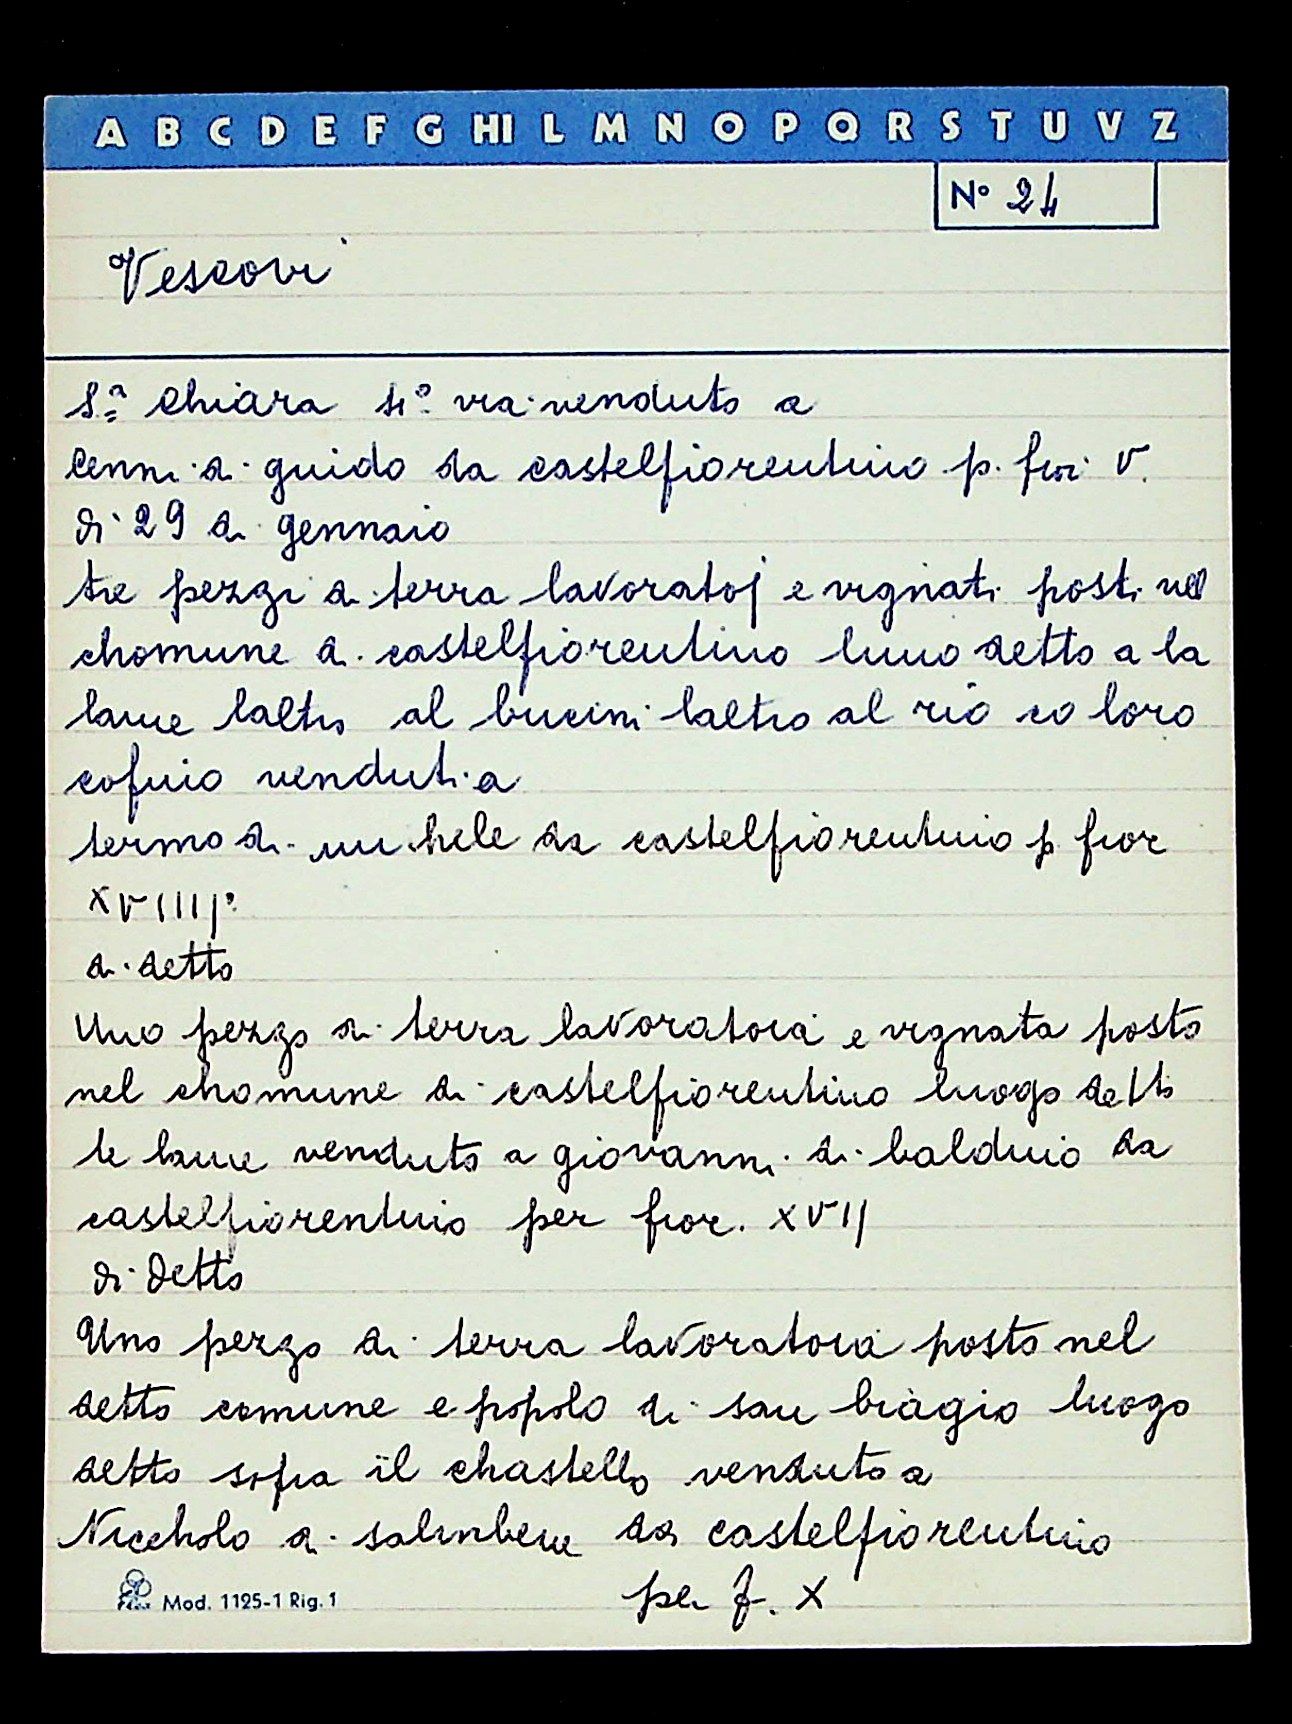 A B C D E F G HI L M N O P Q R S T U V Z
N° 24
Vescovi
S.ª Chiara 4° via venduto a
Cenni di guido da castelfiorentino p. fior V.
di 29 di gennaio
tre pezzi di terra lavoratoj e vignati posti nel
chomune di castelfiorentino luno detto a la
lame laltro al bucini laltro al rio co loro
cofino venduti a
termo di michele da castelfiorentino p fior
XVIIII°
di detto
Uno pezzo di terra lavoratoia e vignata posto
nel chomune di castelfiorentino luogo detto
le lame venduto a giovanni di balduio da
castelfiorentino per fior. XVII
di detto
Uno pezzo di terra lavoratoia posto nel
detto comune e popolo di san biagio luogo
detto sopra il chastello venduto a
Niccholo di salimbene da castelfiorentino
per f. X
Mod. 1125-1 Rig. 1